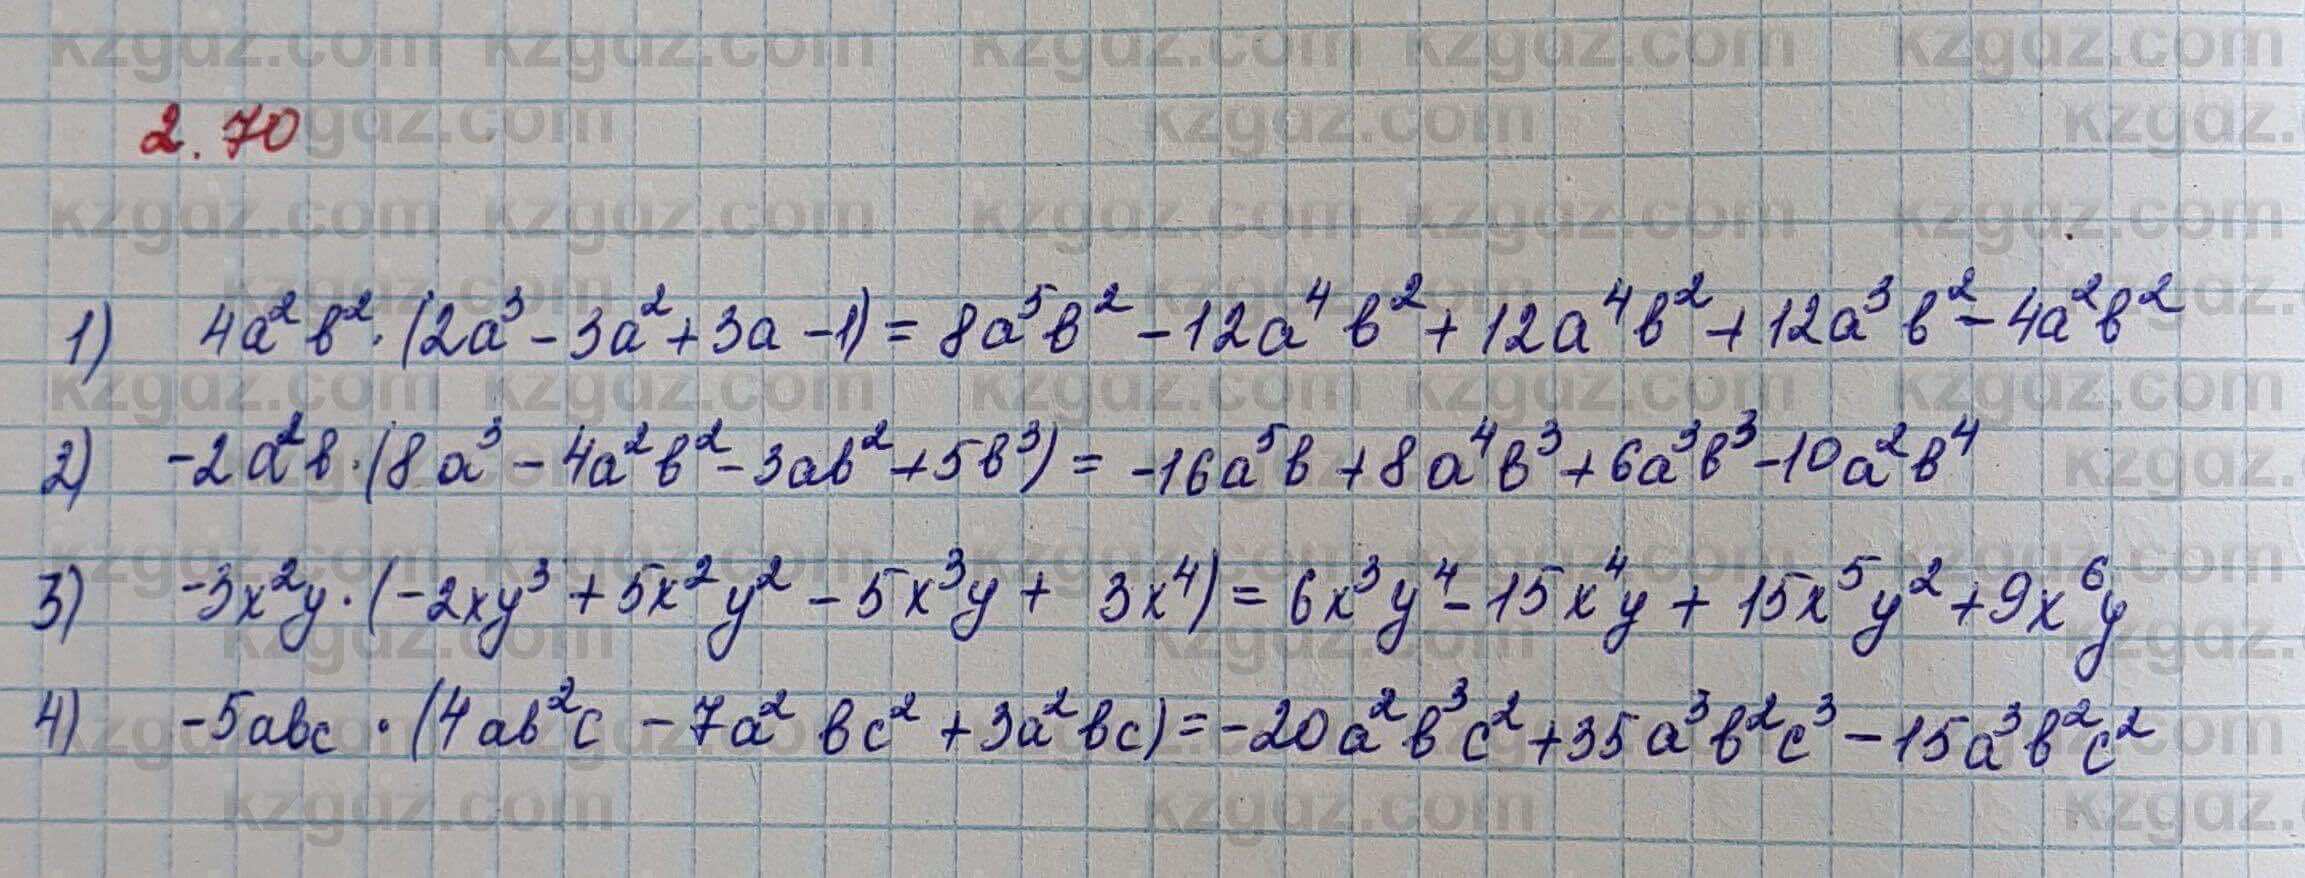 kzgdz.com kzgdz.com kzgdz.com kzgdz.com kzgdz.com
2.70
1) 4a²b²·(2a³-3a²+3a-1)=8a⁵b²-12a⁴b²+12a⁴b²+12a³b²-4a²b²
2) -2a²b·(8a³-4a²b²-3ab²+5b³)=-16a⁵b+8a⁴b³+6a³b³-10a²b⁴
3) -3x²y·(-2xy³+5x²y²-5x³y+3x⁴)=6x³y⁴-15x⁴y+15x⁵y²+9x⁶y
4) -5abc·(4ab²c-7a²bc²+3a²bc)=-20a²b³c²+35a³b²c³-15a³b²c²